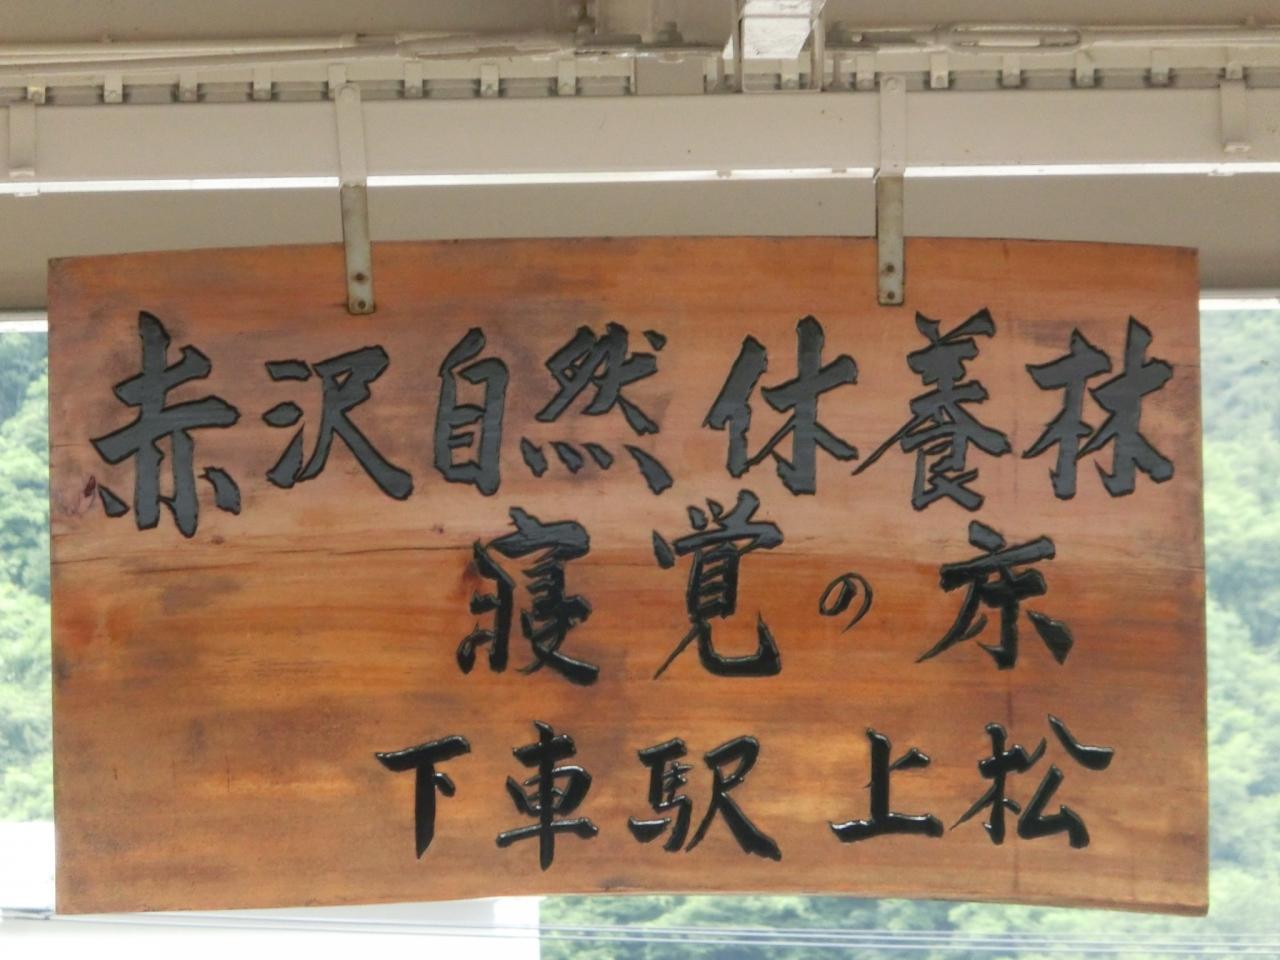 赤沢自然休養林
寝覚の床
下車駅 上松